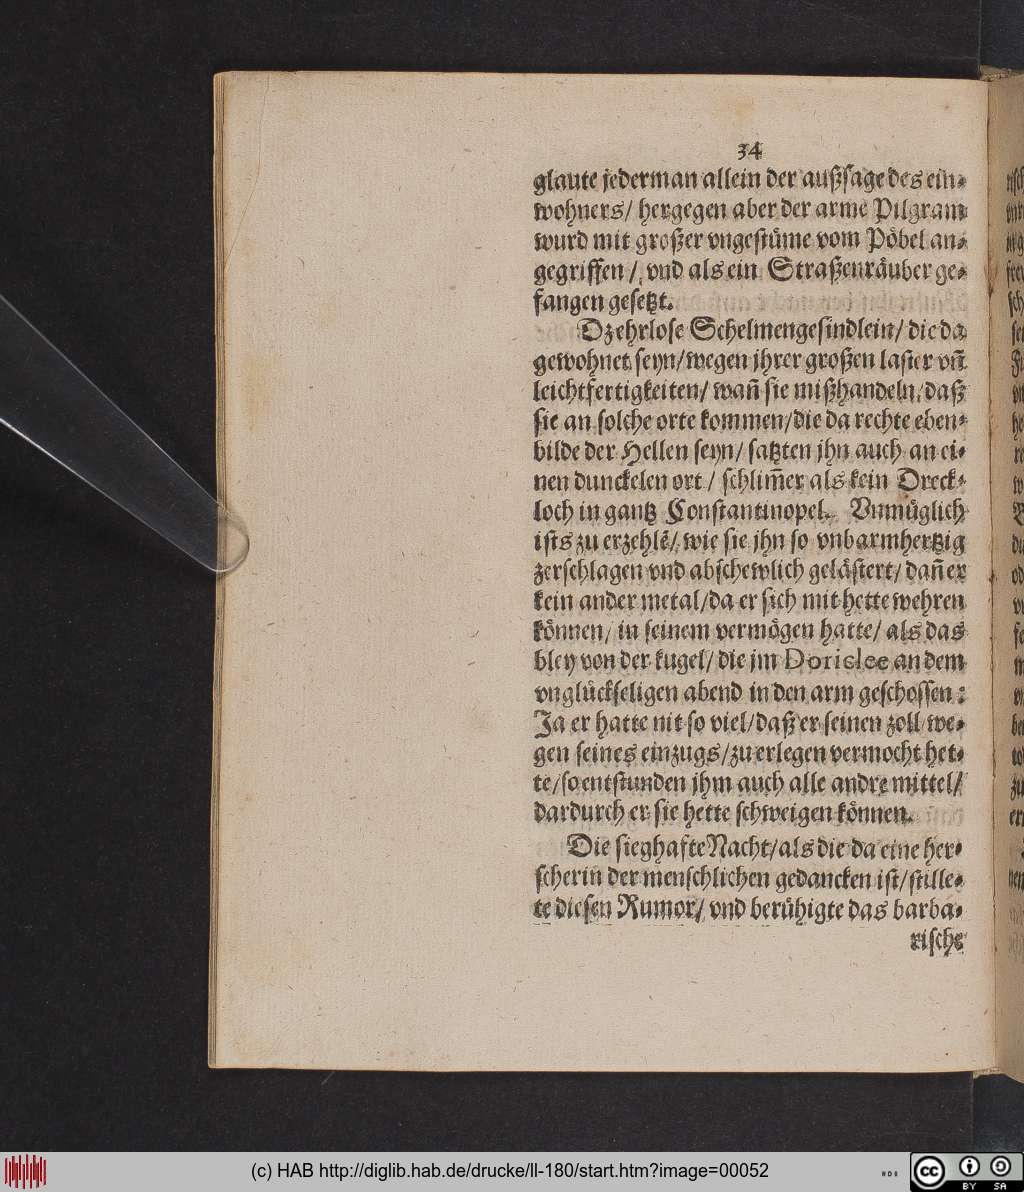 34
glaute jederman allein der außsage des ein⸗
wohners/ hergegen aber der arme Pilgram
wurd mit großer vngestüme vom Pöbel an⸗
gegriffen/ vnd als ein Straßenräuber ge⸗
fangen gesetzt.
Dz ehrlose Schelmengesindlein/ die da
gewohnet seyn/ wegen jhrer großen laster vñ
leichtfertigkeiten/ wañ sie mißhandeln/ daß
sie an solche orte kommen/ die da rechte eben⸗
bilde der Hellen seyn/ satzten jhn auch an ei⸗
nen dunckelen ort/ schlim̃er als kein Dreck⸗
loch in gantz Constantinopel. Vnmüglich
ists zu erzehlẽ/ wie sie jhn so vnbarmhertzig
zerschlagen vnd abschewlich gelästert/ dañ er
kein ander metal/ da er sich mit hette wehren
können/ in seinem vermögen hatte/ als das
bley von der kugel/ die jm Doriclee an dem
vnglückseligen abend in den arm geschossen:
Ja er hatte nit so viel/ daß er seinen zoll we⸗
gen seines einzugs/ zu erlegen vermocht het⸗
te/ so entstunden jhm auch alle andre mittel/
dardurch er sie hette schweigen können.
Die sieghafte Nacht/ als die da eine her⸗
scherin der menschlichen gedancken ist/ stille⸗
te diesen Rumor/ vnd berühigte das barba⸗
rische
(c) HAB http://diglib.hab.de/drucke/ll-180/start.htm?image=00052
cc BY SA